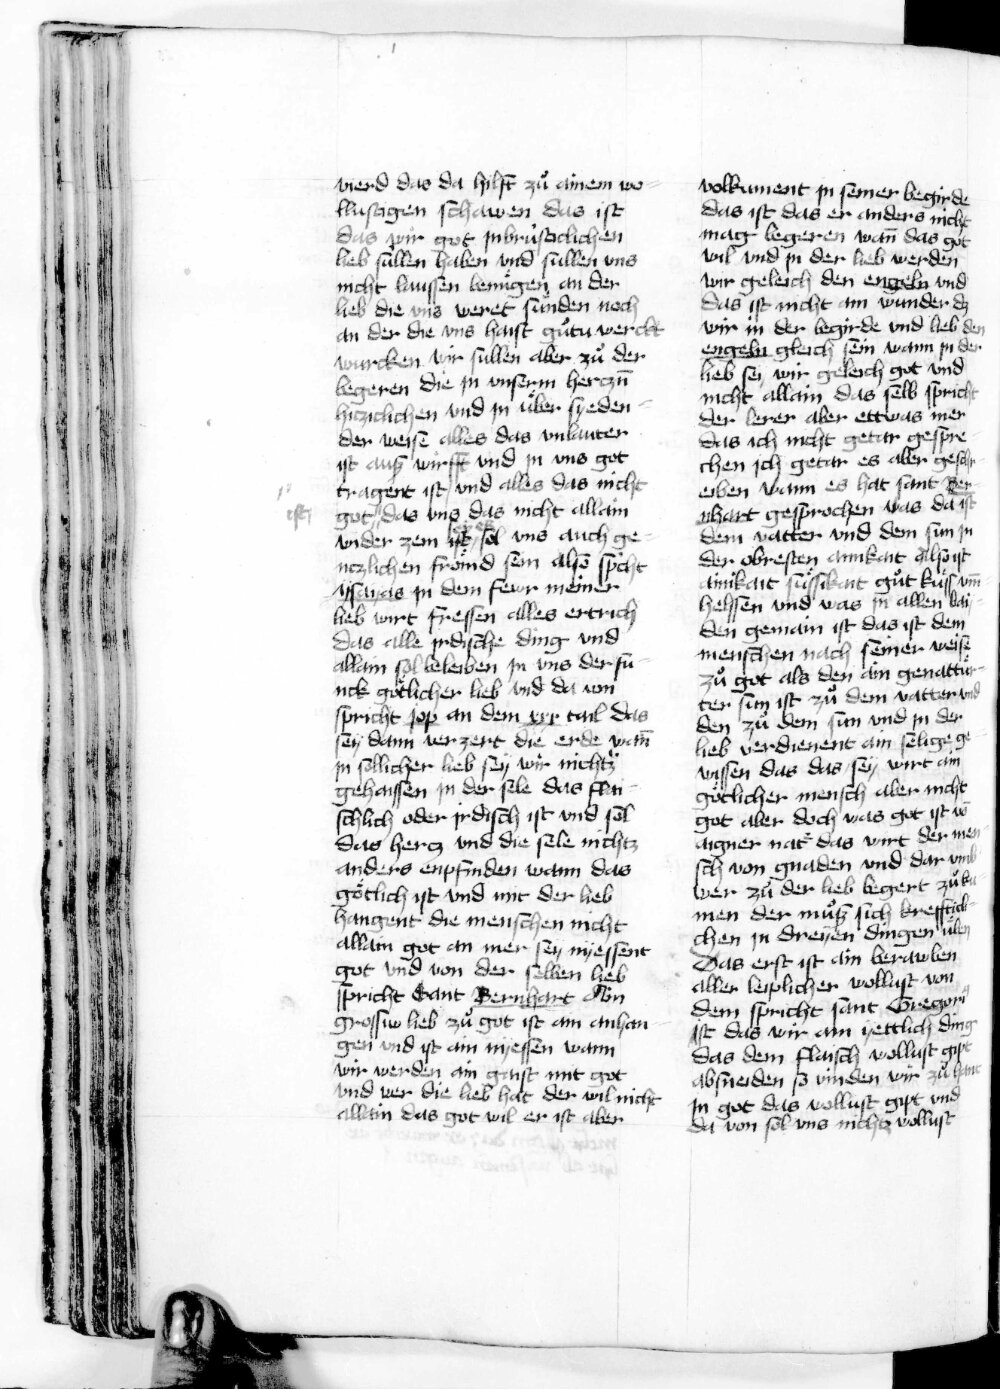 vierd das da hilft zuͦ ainem wo-
llustigen schawen das ist
das wir got inbrüstclichen
lieb süllen haben vnd sullen vns
nicht laussen benuͤgen an der
lieb die vns weret sünden noch
an der die vns haist guͦtu werckt
wurcken wir sullen aber zuͦ der
begeren die in vnserm herczn̄
hicziclichen vnd in über syeden-
der weise alles das vnlauter
ist auß wirfft vnd in vns got
tragent ist vnd alles das nicht
got das vns das nicht allain
vnder zem ist sol vns auch ge-
nczlichen froͤmd sein also spͥcht
ysayas in dem fewr meiner
lieb wirt fressen alles ertrich
das alle irdische ding vnd
allain sol beleiben in vns der fu-
nck goͤtlicher lieb vnd da von
spricht Job an dem xxx tail das
sey dann verzert die erde wan̄
in sollicher lieb sey wir nichtz
gehaissen in der sele das flai-
schlich oder irdisch ist vnd sol
das hercz vnd die sele nichtz
anders enpfinden wann das
goͤtlich ist vnd mit der lieb
hangent die menschen nicht
allain got an mer sey nyessent
got vnd von der selben lieb
spricht Sant Bernhart Ain
grossiw lieb zuͦ got ist am anhan-
gen vnd ist ain nyessen wann
wir werden ain gaist mit got
vnd wer die lieb hat der wil nicht
allain das got wil er ist aber
volkument in seiner begirde
das ist das er anders nicht
mag begeren wan̄ das got
wil vnd in der lieb werden
wir geleich den engeln vnd
das ist nicht ain wunder dz
wir in der begirde vnd lieb den
engeln gleich sein wann in der
lieb sey wir geleich got vnd
nicht allain das selb spricht
der lerer aber ettwas mer
das ich nicht getar gespre-
chen ich getar es aber geschr-
eiben wann es hat sant Ber-
nhart gesprochen was da ist
dem vatter vnd dem sun in
der obresten ainikait Also ist
ainikait süssikait guͦt küss vm̄
helssen vnd was in allen bai-
den gemain ist das ist dem
menschen nach seiner weise
zuͦ got als den ain genattür-
ter sun ist zuͦ dem vatter vnd
den zuͦ dem sun vnd in der
lieb verdienent ain selige ge-
wissen das das sey wirt ain
goͤtlicher mensch aber nicht
got aber doch was got ist vō
aigner nat᷑ das wirt der men-
sch von gnaden vnd dar vmb
wer zuͦ der lieb begert zuͦ ku-
men der muͦß sich krefftick-
chen in dreyen dingen üben
Das erst ist ain berawben
aller leiplicher wollust von
dem spricht sant Gregori
Ist das wir ain yettlich ding
das dem flaisch wollust gipt
absneiden so vinden wir zuͦ hant
in got das wollust gipt vnd
da von sol vns nichtz wollust